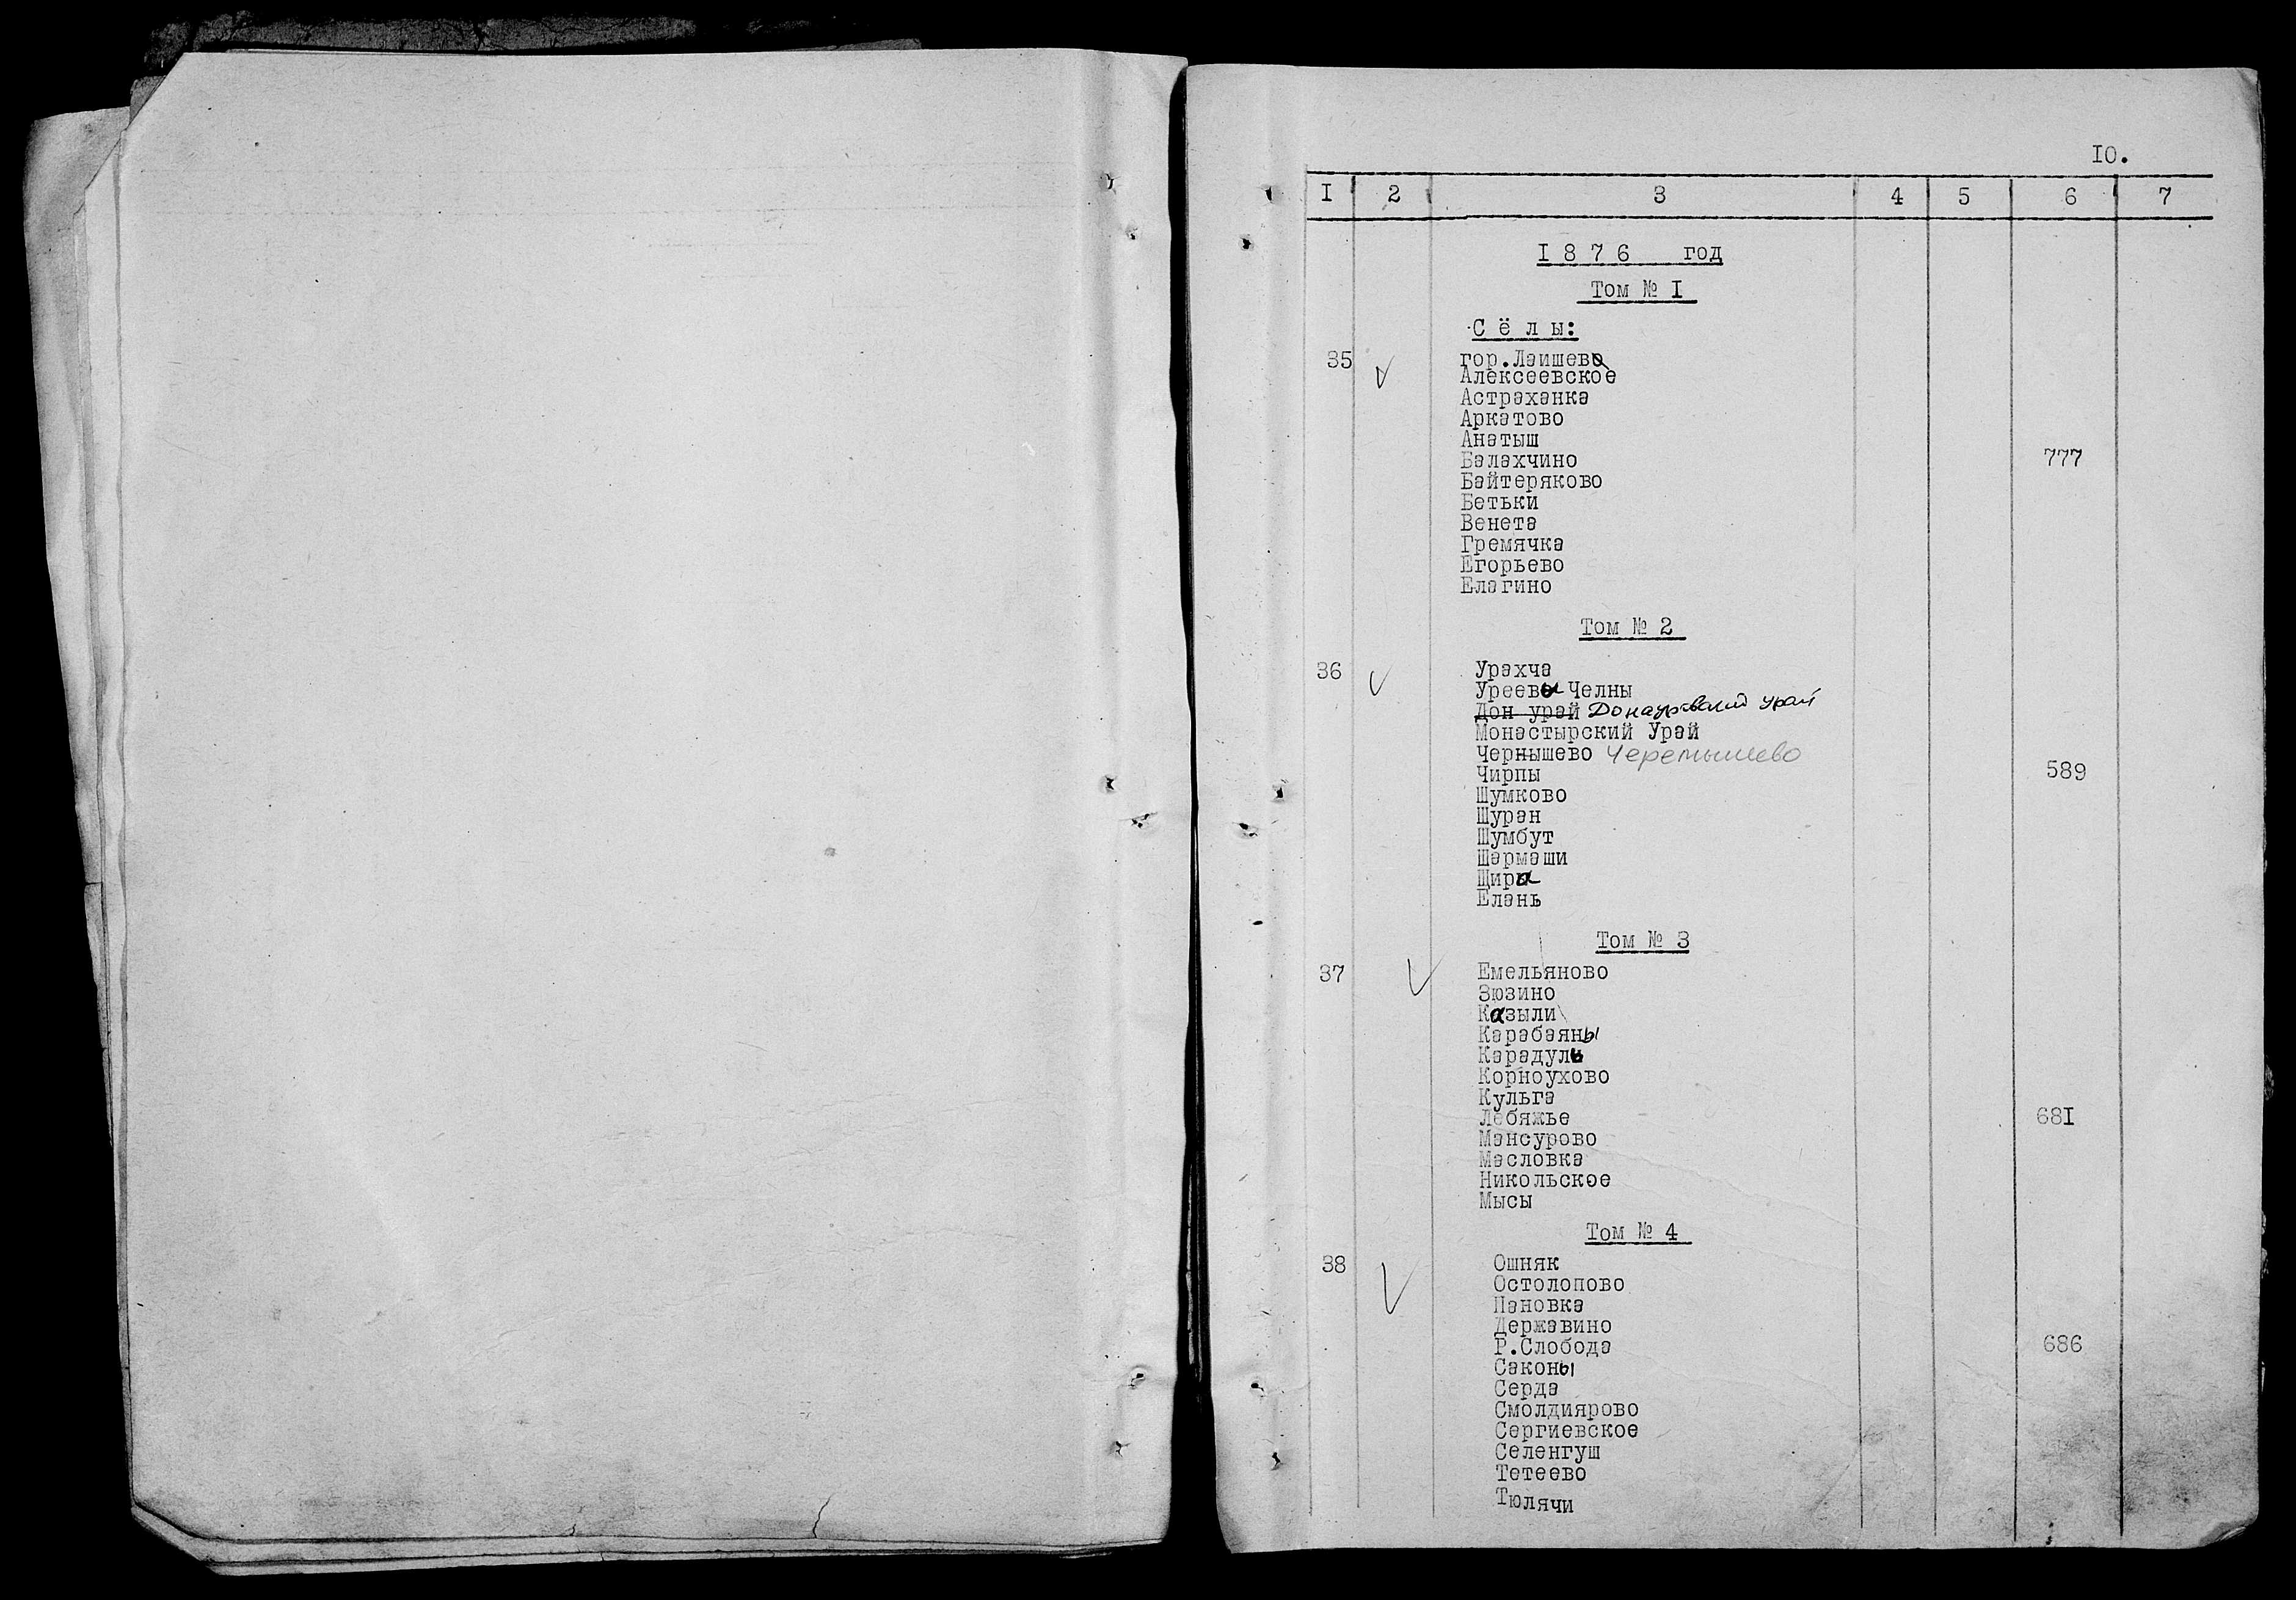 10.
I 2 3 4 5 6 7
I876 год
Том № I
Сёлы:
35 гор.Лаишево
Алексеевское
Астраханка
Аркатово
Анатыш
Балахчино 777
Байтеряково
Бетьки
Венета
Гремячка
Егорьево
Елагино
Том № 2
36 Урахча
Уреевы Челны
Дон урай Донауровский урай
Монастырский Урай
Чернышево Черемышево
Чирпы 589
Шумково
Шуран
Шумбут
Шармаши
Щиры
Елань
Том № 3
37 Емельяново
Зюзино
Казыли
Карабаяны
Карадули
Корноухово
Кульга
Лебяжье 68I
Мансурово
Масловка
Никольское
Мысы
Том № 4
38 Ошняк
Остолопово
Пановка
Державино
Р.Слобода 686
Саконы
Серда
Смолдиярово
Сергиевское
Селенгуш
Тетеево
Тюлячи